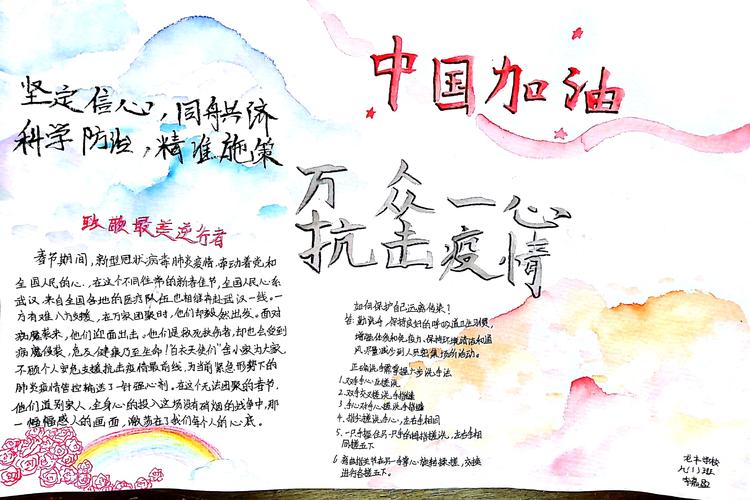 中国加油
坚定信心,同舟共济
科学防治,精准施策
万众一心
抗击疫情
致敬最美逆行者
春节期间,新型冠状病毒肺炎疫情,牵动着党和
全国人民的心。在这个不同往常的新春佳节,全国人民心系
武汉,来自全国各地的医疗队伍也相继奔赴武汉一线。一
方有难八方支援,在万家团聚时,他们却毅然出发。面对
病魔袭来,他们迎面出击。他们是救死扶伤者,却也会受到
病魔侵袭,危及健康乃至生命!"白衣天使们"舍小家为大家,
不顾个人安危支援抗击疫情最前线,为当前紧急形势下的
肺炎疫情管控输送了一针强心剂。在这个无法团聚的春节,
他们道别家人,全身心的投入这场没有硝烟的战争中,那
一幅幅感人的画面,激荡在了我们每个人的心底。
如何保护自己远离传染?
答:勤洗手,保持良好的呼吸道卫生习惯,
增强体质和免疫力,保持环境清洁和通
风,尽量减少到人员密集场所活动。
正确洗手需掌握六步洗手法
1.对手心五搓洗
2.对手交叉搓洗手指缝
3.手心对手心搓洗手指缝
4.指尖搓洗手心,左右手相同
5.一只手握住另一只手的拇指搓洗,左右手相
同搓五下
6.弯曲指关节在另一手掌心旋转揉搓,交换
进行各搓五下。
九(1)班